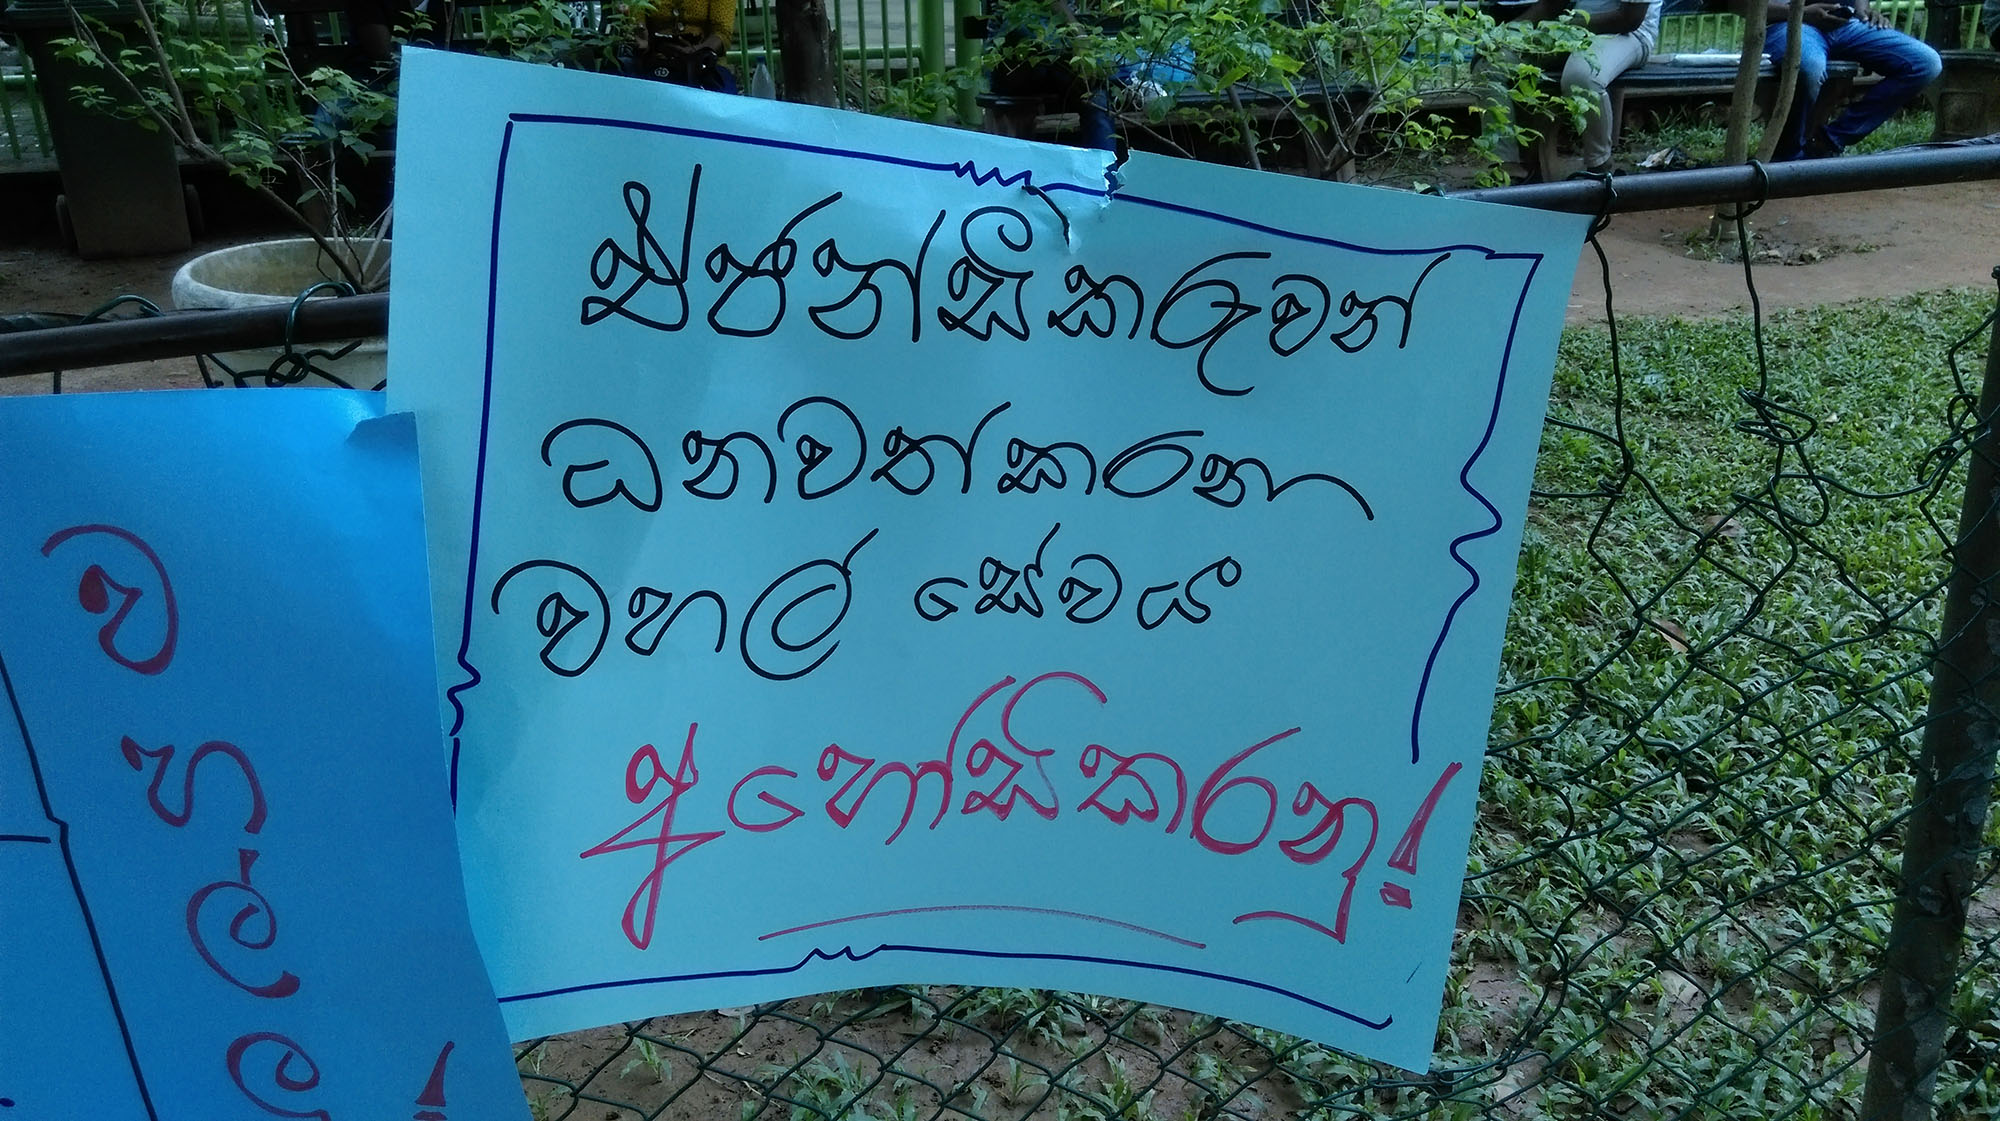 ඒජන්සිකරුවන්
ධනවත්කරන
වහල් සේවය
අහෝසිකරනු!
ව
හ
ල්
ල
!